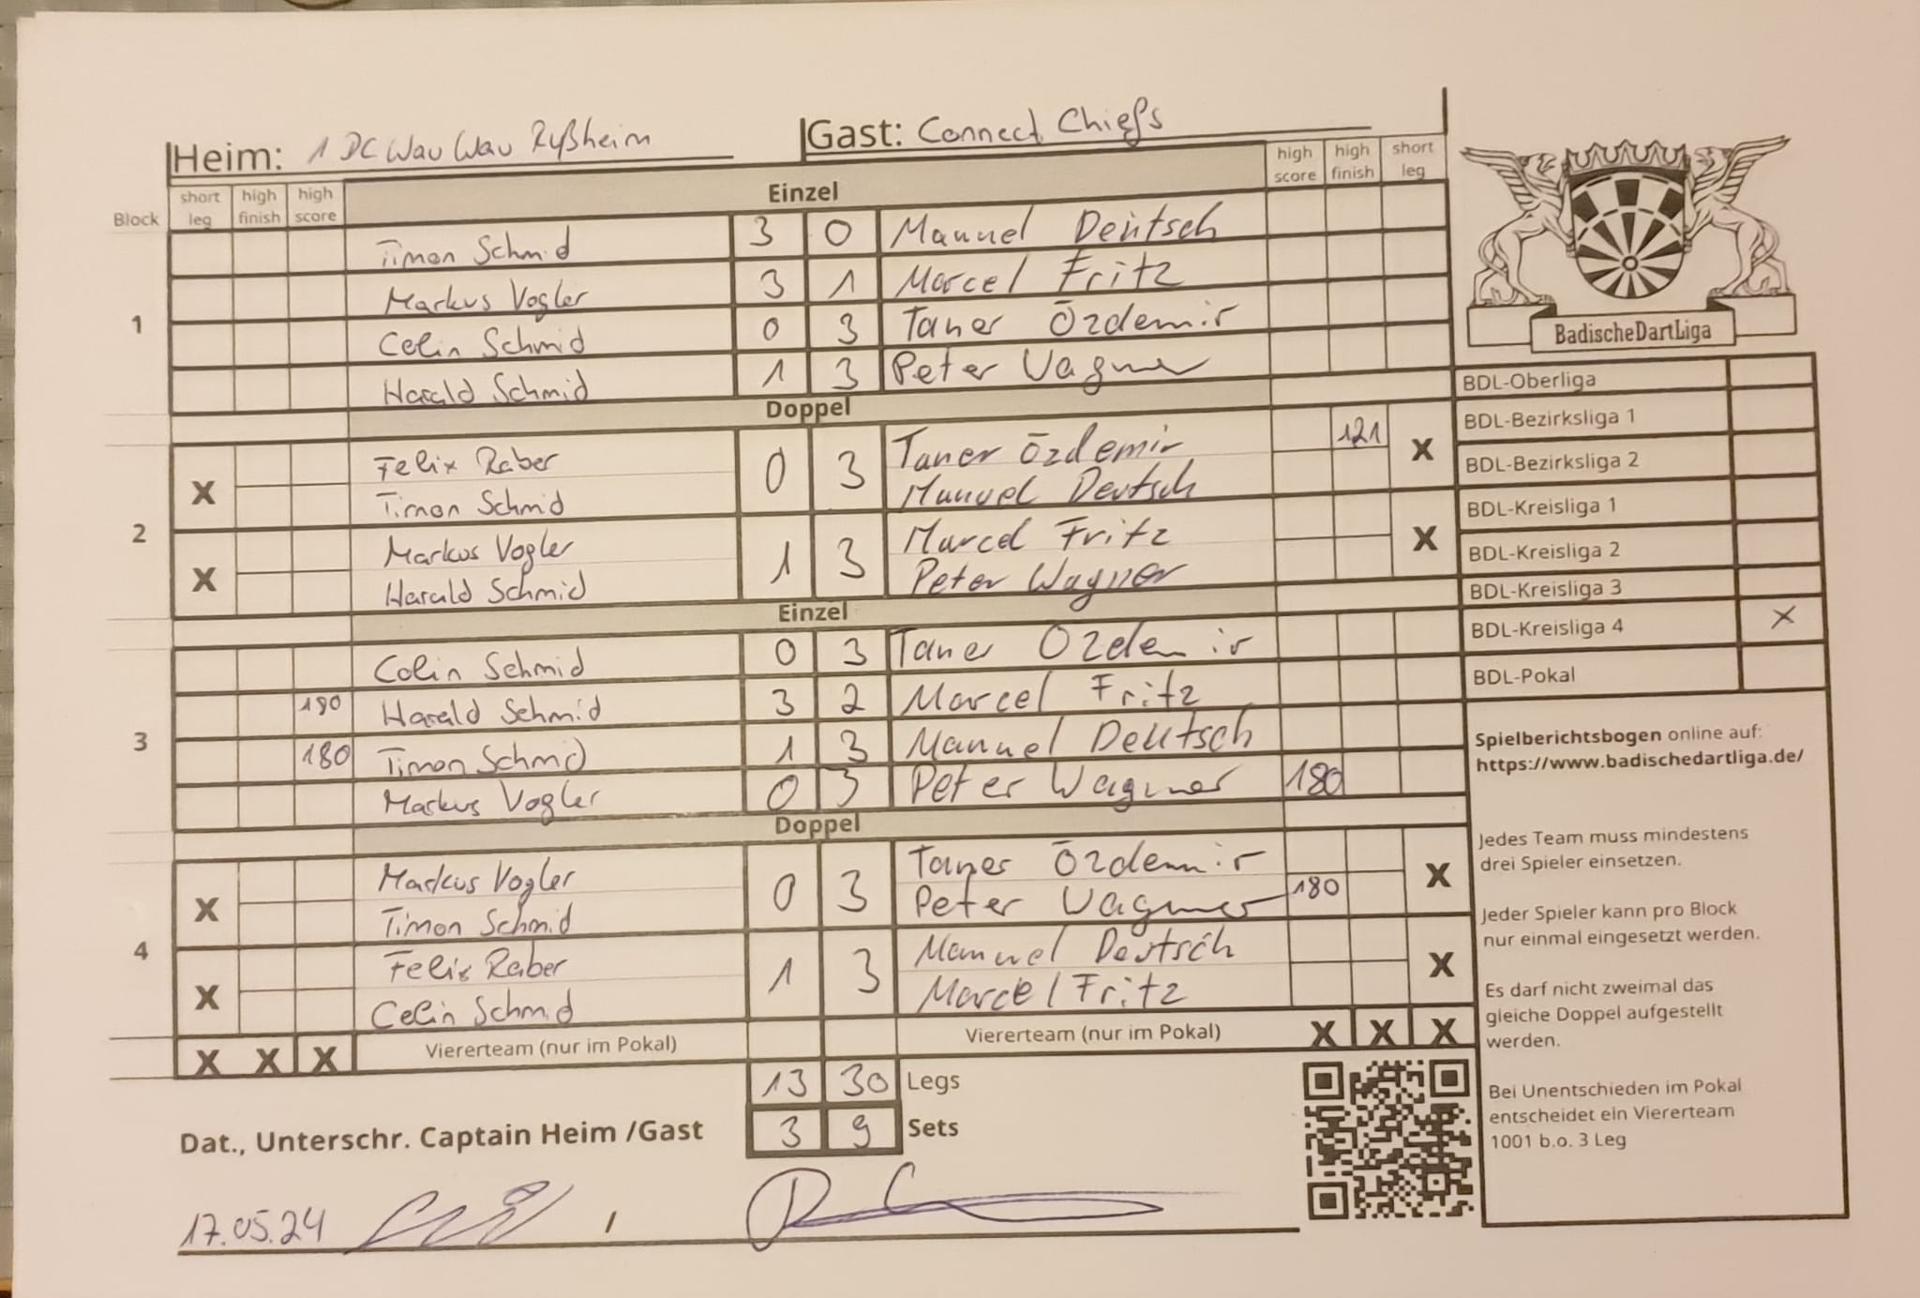 Heim: 1 DC Wau Wau Rußheim Gast: Connect Chiefs
Block short leg high finish high score Einzel high score high finish short leg
1
Timon Schmid 3 0 Manuel Deutsch
Markus Vogler 3 1 Marcel Fritz
Colin Schmid 0 3 Taner Özdemir
Harald Schmid 1 3 Peter Wagner
Doppel
2
X Felix Raber 0 3 Taner Özdemir 121 X
Timon Schmid Manuel Deutsch
X Markus Vogler 1 3 Marcel Fritz X
Harald Schmid Peter Wagner
Einzel
3
Colin Schmid 0 3 Taner Ozdemir
180 Harald Schmid 3 2 Marcel Fritz
180 Timon Schmid 1 3 Manuel Deutsch
Markus Vogler 0 3 Peter Wagner 180
Doppel
4
X Markus Vogler 0 3 Taner Özdemir X
Timon Schmid Peter Wagner 180
X Felix Raber 1 3 Manuel Deutsch X
Colin Schmid Marcel Fritz
X X X Viererteam (nur im Pokal) Viererteam (nur im Pokal) X X X
13 30 Legs
Dat., Unterschr. Captain Heim /Gast 3 9 Sets
17.05.24 /
BadischeDartLiga
BDL-Oberliga
BDL-Bezirksliga 1
BDL-Bezirksliga 2
BDL-Kreisliga 1
BDL-Kreisliga 2
BDL-Kreisliga 3
BDL-Kreisliga 4 X
BDL-Pokal
Spielberichtsbogen online auf:
https://www.badischedartliga.de/
Jedes Team muss mindestens
drei Spieler einsetzen.
Jeder Spieler kann pro Block
nur einmal eingesetzt werden.
Es darf nicht zweimal das
gleiche Doppel aufgestellt
werden.
Bei Unentschieden im Pokal
entscheidet ein Viererteam
1001 b.o. 3 Leg